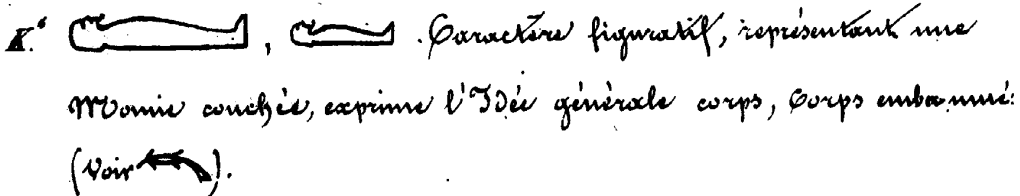 K. , . Caractère figuratif, représentant une
Momie couchée, exprime l'Idée générale corps, Corps embaumé:
(Voir ).